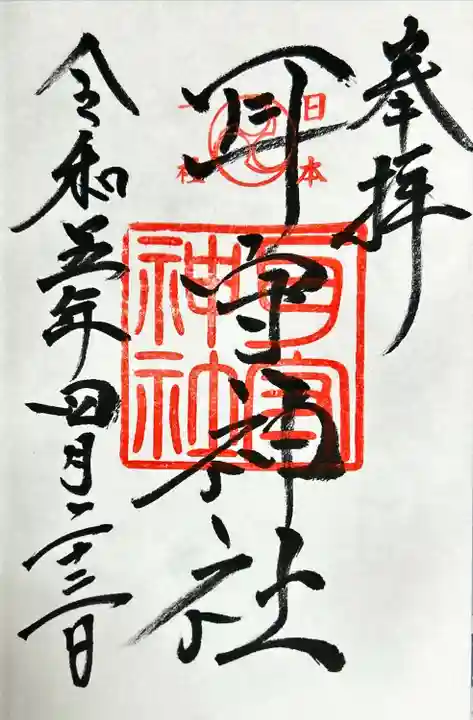 奉拝
日本
一社
耳守神社
耳守
神社
令和五年四月二十三日